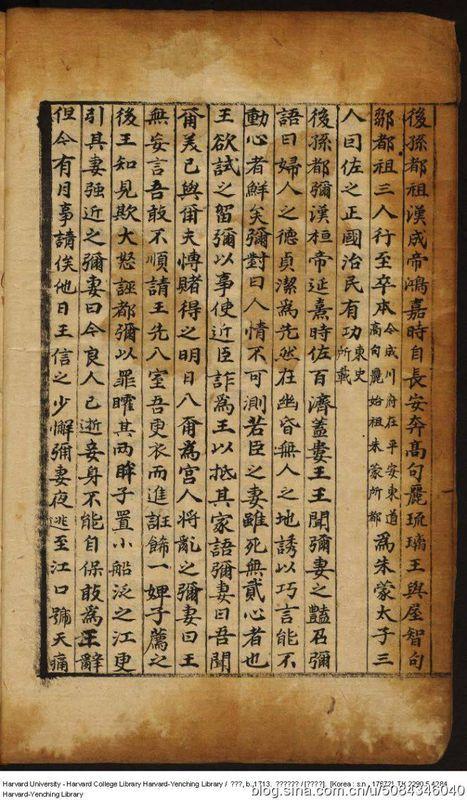 後孫都祖漢成帝鴻嘉時自長安奔高句麗琉璃王與屋智句
鄒都祖三人行至卒本今成川府在平安東道高句麗始祖朱蒙所都爲朱蒙太子三
人曰佐之正國治民有功東史所載
後孫都彌漢桓帝延熹時佐百濟蓋婁王王聞彌妻之豔召彌
語曰婦人之德貞潔爲先然在幽昏無人之地誘以巧言能不
動心者鮮矣彌對曰人情不可測若臣之妻雖死無貳心者也
王欲試之留彌以事使近臣詐爲王以抵其家語彌妻曰吾聞
爾美已與爾夫愽賭得之明日入爾爲宮人將亂之彌妻曰王
無妄言吾敢不順請王先入室吾更衣而進誑餙一婢子薦之
後王知見欺大怒誣都彌以罪矐其兩眸子置小船泛之江更
引其妻强近之彌妻曰今良人已逝妾身不能自保敢爲王辭
但今有月事請俟他日王信之少懈彌妻夜逃至江口號天痛
Harvard University - Harvard College Library Harvard-Yenching Library / ???, b. 1713. ?????? / [????]. [Korea : s.n., 1767?] TK 2290.5 4284
Harvard-Yenching Library
blog.sina.com.cn/u/5084346040